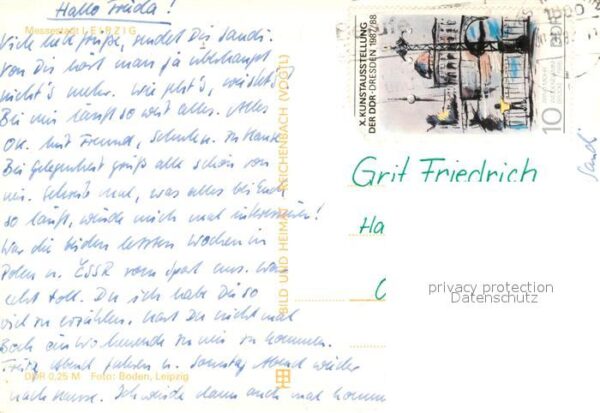 Hallo Frieda!
Messestadt LEIPZIG
Viele liebe Grüße, sendet Dir Sandi.
Von Dir hört man ja überhaupt
nicht's mehr. Wie geht's, wie steht's
Bei mir läuft so weit alles. Alles
OK. mit Freund, Schule u. zu Hause.
Bei Gelegenheit grüß alle schön von
mir. Schreib mal, was alles bei Euch
so läuft, würde mich mal interessieren!
War die beiden letzten Wochen in
Polen u. ČSSR vom Sport aus. War
echt toll. Du ich habe Dir so
viel zu erzählen. Hast Du nicht mal
Bock ein Wochenende zu mir zu kommen.
Freitag Abend fahren u. Sonntag Abend wieder
nach Hause. Ich würde dann auch mal kommen
DDR 0,25 M Foto: Boden, Leipzig
BILD UND HEIMAT REICHENBACH (VOGTL)
X. KUNSTAUSSTELLUNG
DER DDR · DRESDEN 1987/88
10 DDR
Grit Friedrich
Ha
privacy protection
Datenschutz
Sandi